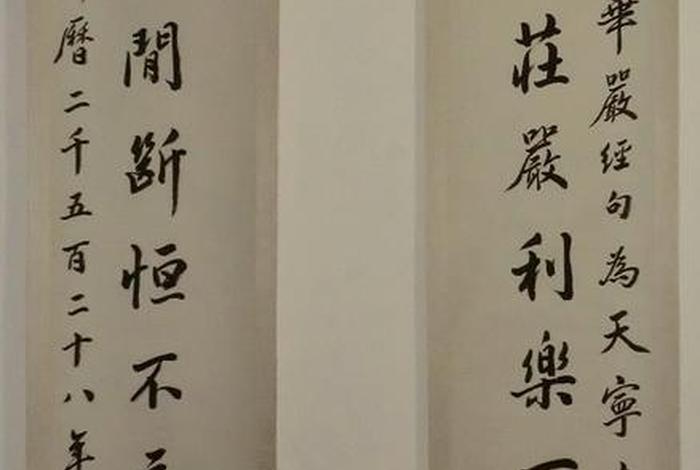 華嚴經句為天寧
莊嚴利樂
間斷恒不
曆二千五百二十八年